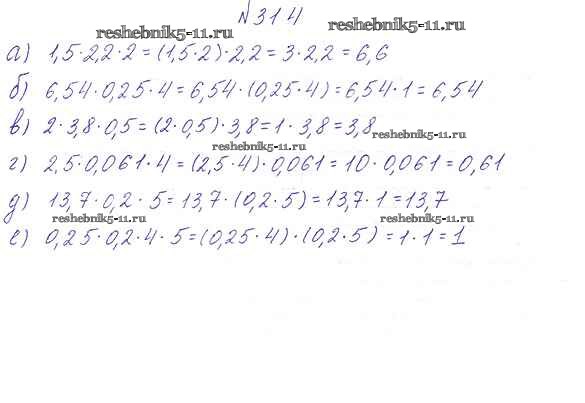 №314
reshebnik5-11.ru
reshebnik5-11.ru
а) 1,5·2,2·2=(1,5·2)·2,2=3·2,2=6,6
б) 6,54·0,25·4=6,54·(0,25·4)=6,54·1=6,54
в) 2·3,8·0,5=(2·0,5)·3,8=1·3,8=3,8
reshebnik5-11.ru
reshebnik5-11.ru
г) 2,5·0,061·4=(2,5·4)·0,061=10·0,061=0,61
д) 13,7·0,2·5=13,7·(0,2·5)=13,7·1=13,7
reshebnik5-11.ru
reshebnik5-11.ru
е) 0,25·0,2·4·5=(0,25·4)·(0,2·5)=1·1=1